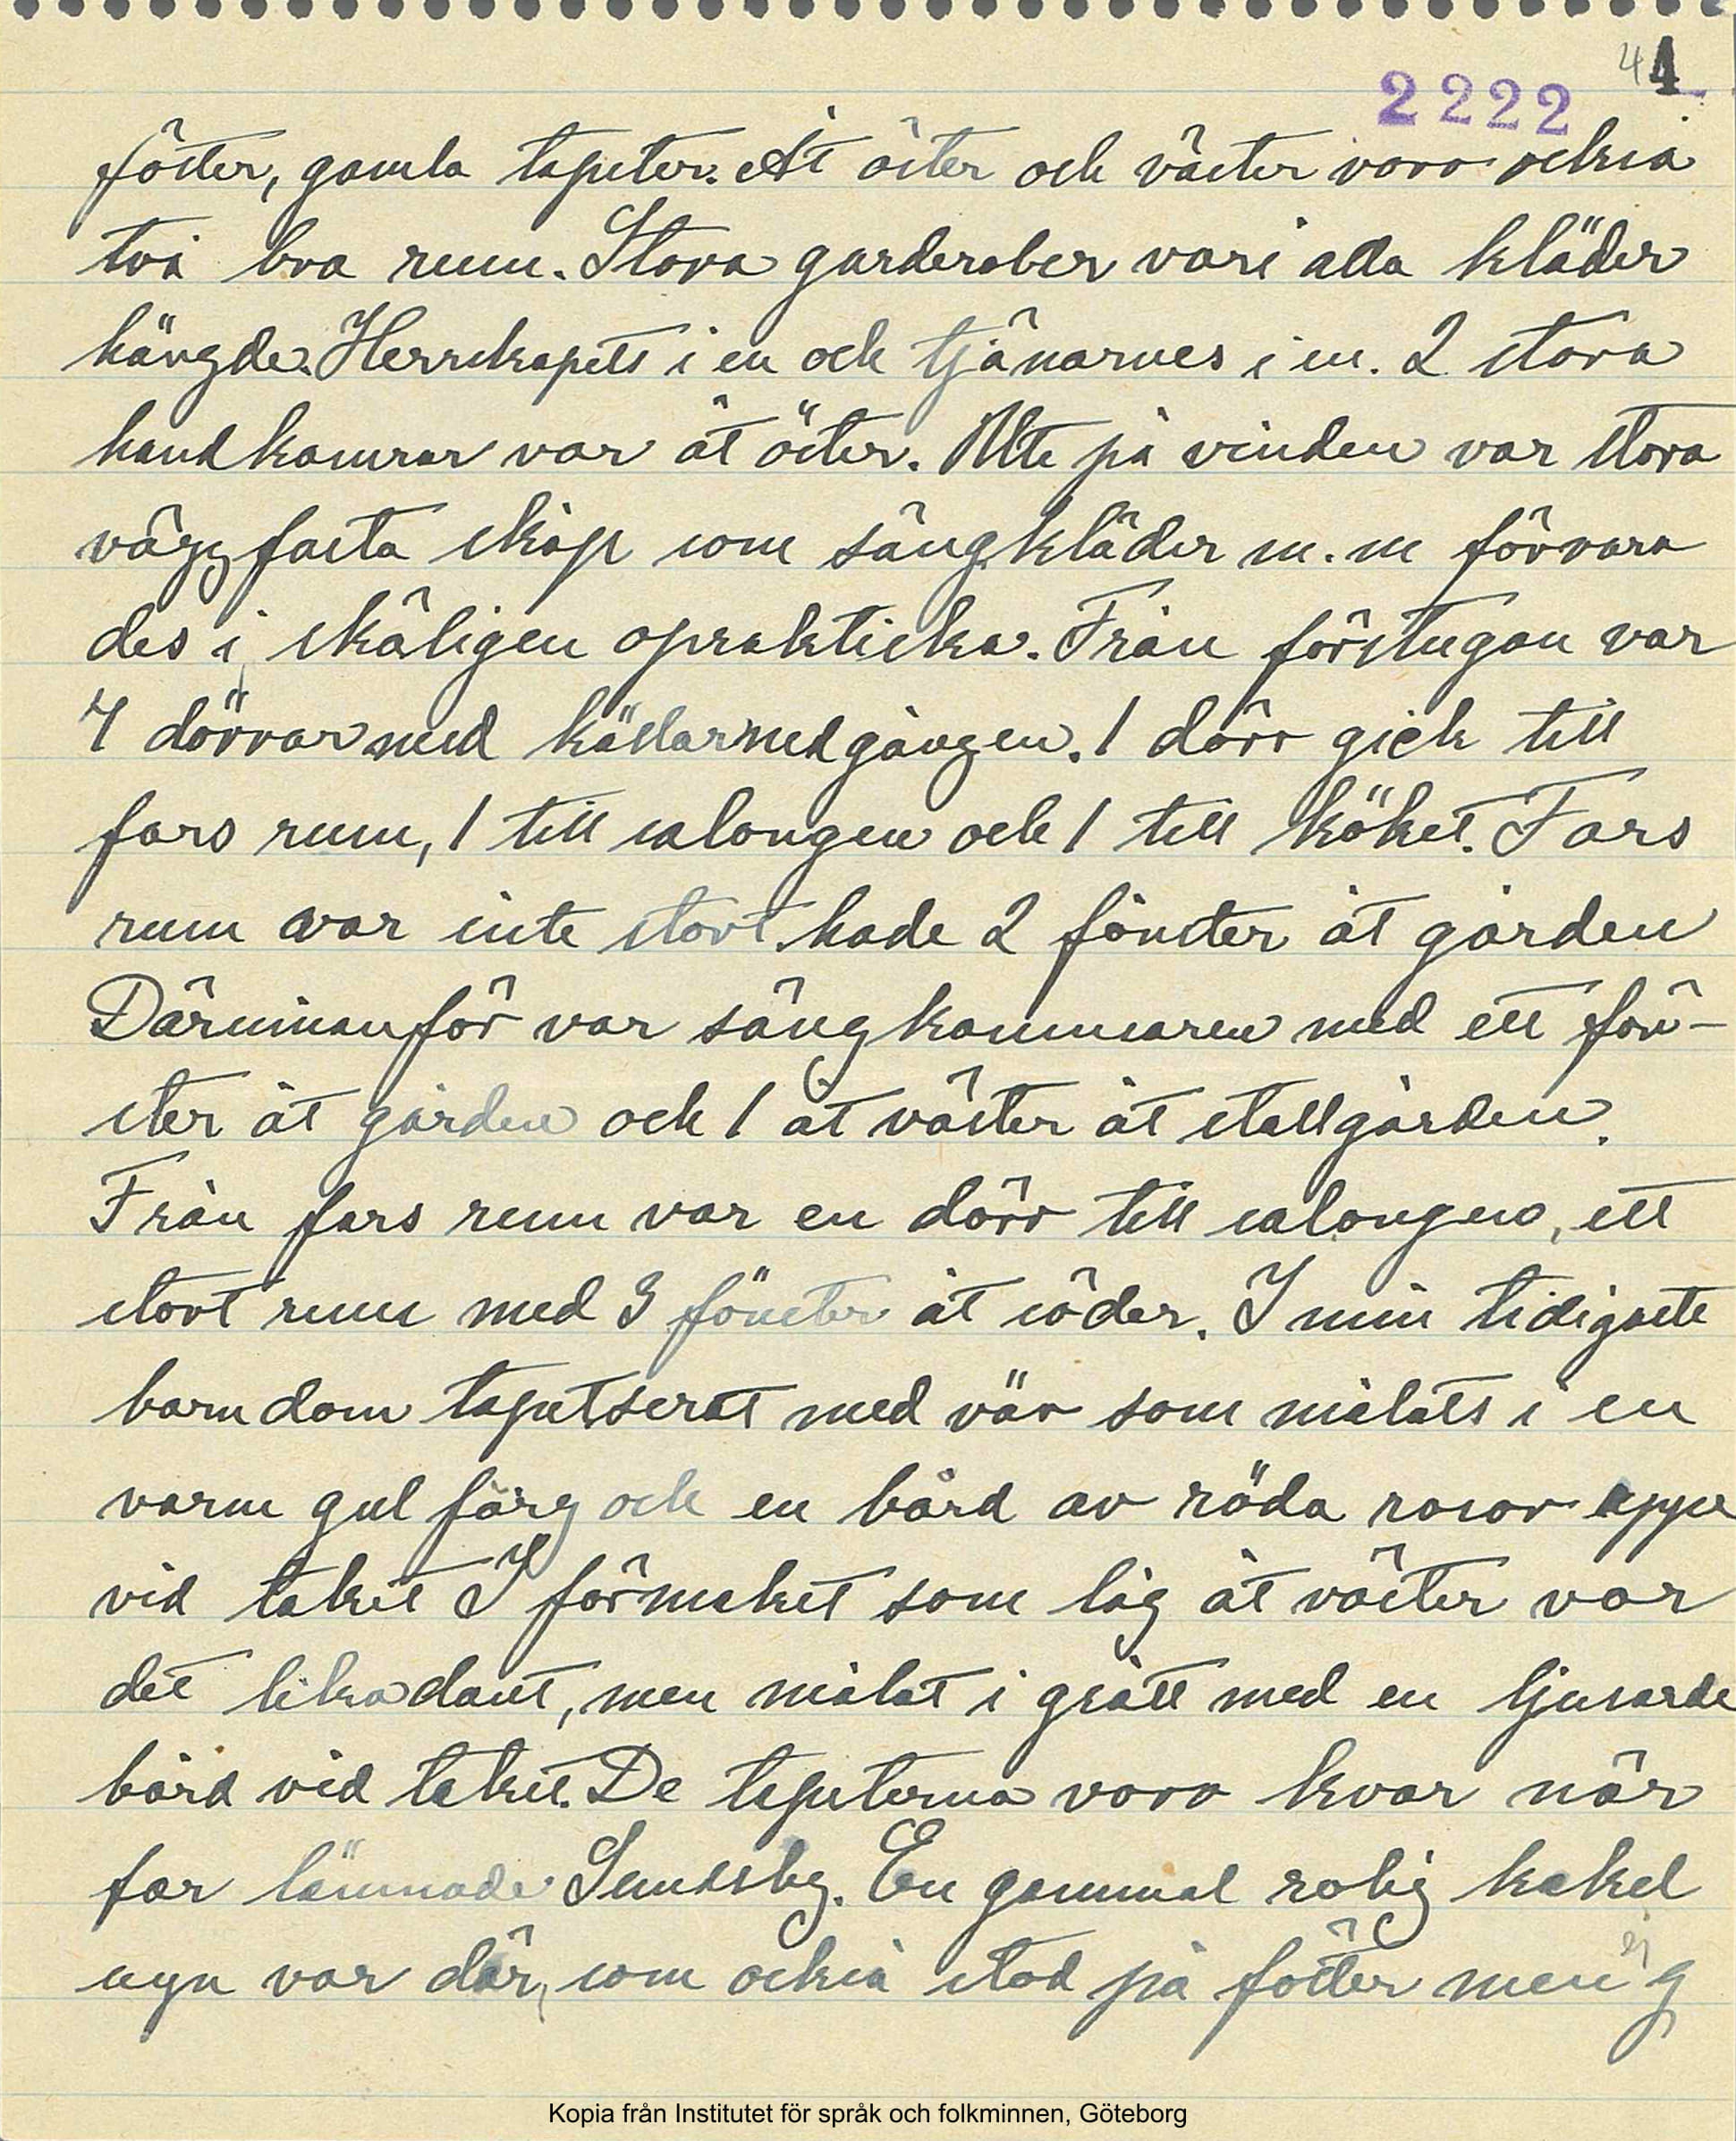 4 4
2222
fötter, gamla tapeter. Åt öster och väster voro också
två bra rum. Stora garderober vari alla kläder
hängde. Herrskapets i en och tjänarnes i en. 2 stora
handkamrar var åt öster. Ute på vinden var stora
väggfasta skåp som sängkläder m.m förvara
des i skäligen opraktiska. Från förstugan var
4 dörrar med källarnedgången. 1 dörr gick till
fars rum, 1 till salongen och 1 till köket. Fars
rum var inte stort hade 2 fönster åt gården
Därinnanför var sängkammaren med ett fön-
ster åt gården och 1 åt väster åt stallgården.
Från fars rum var en dörr till salongen, ett
stort rum med 3 fönster åt söder. I min tidigaste
barndom tapetserat med väv som målats i en
varm gul färg och en bård av röda rosor uppe
vid taket I förmaket som låg åt väster var
det likadant, men målat i grått med en ljusarde
bård vid taket. De tapeterna voro kvar när
far lämnade En gammal rolig kakel
ugn var där, som också stod på fötter men ej